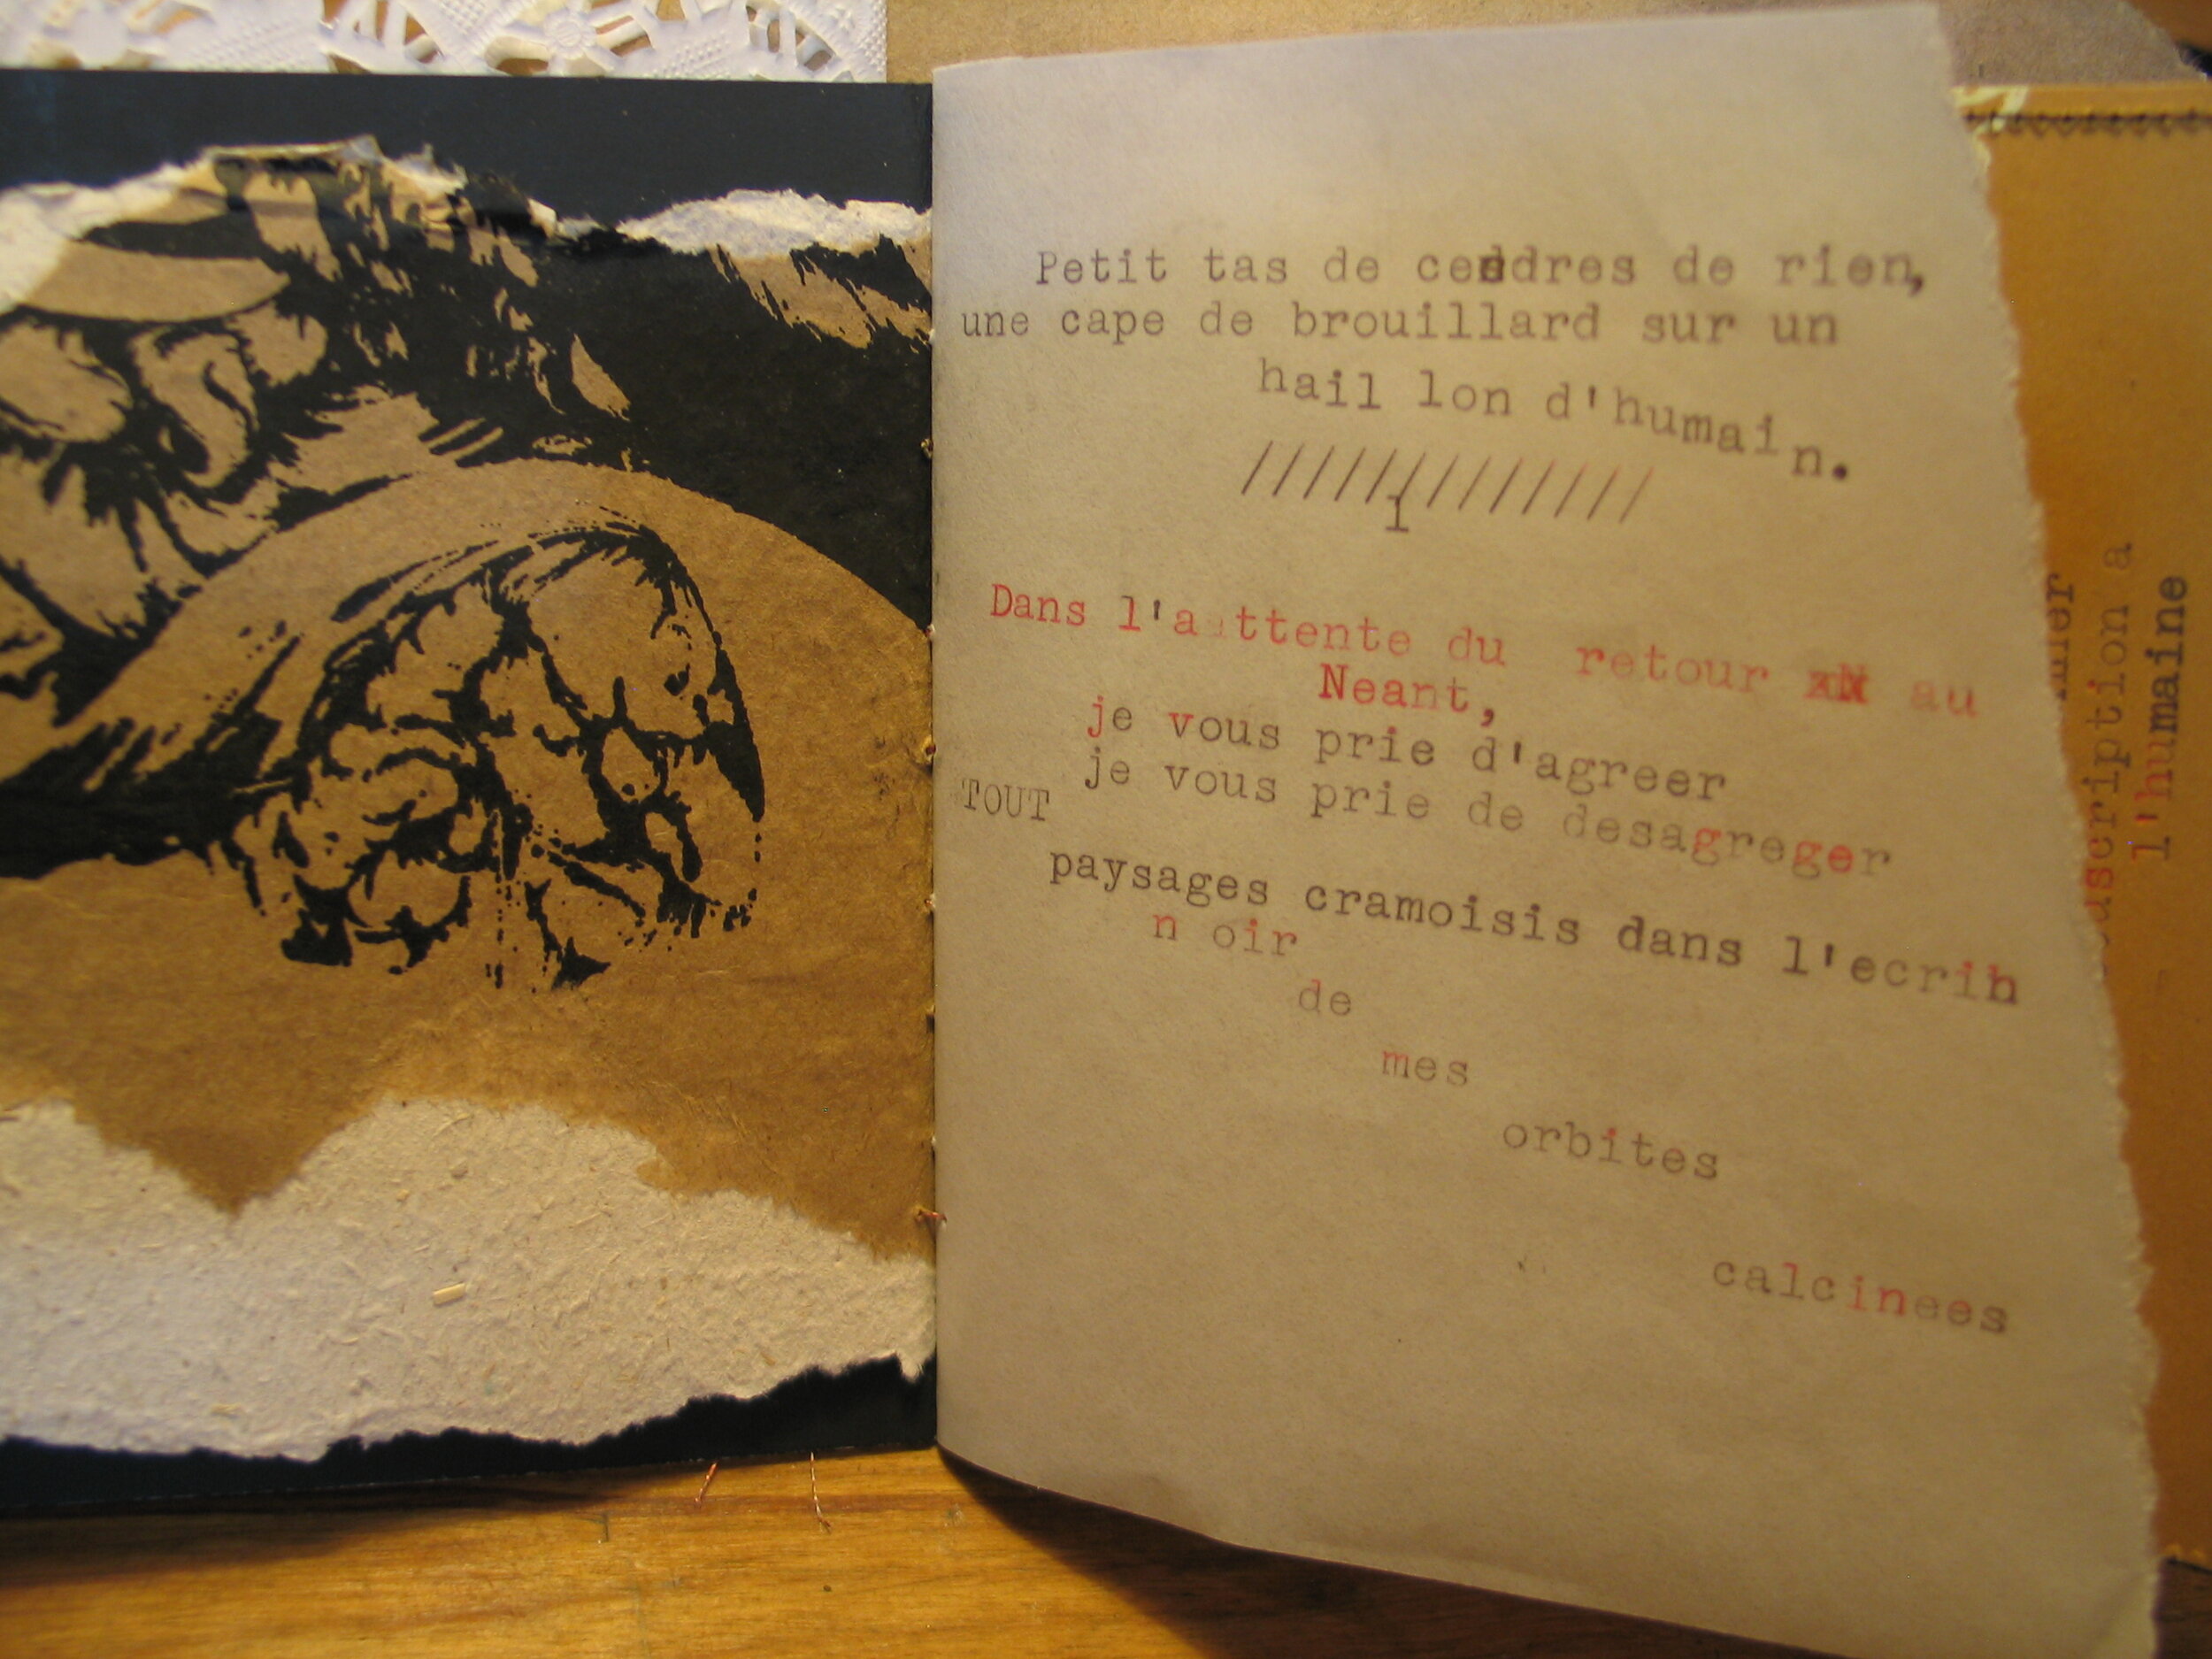 Petit tas de cendres de rien,
une cape de brouillard sur un
hail lon d'humain.
/////////////
1
Dans l'a ttente du retour xN au
Neant,
je vous prie d'agreer
je vous prie de desagreger
TOUT
paysages cramoisis dans l'ecrin
n oir
de
mes
orbites
calcinees
scription a
l'humaine